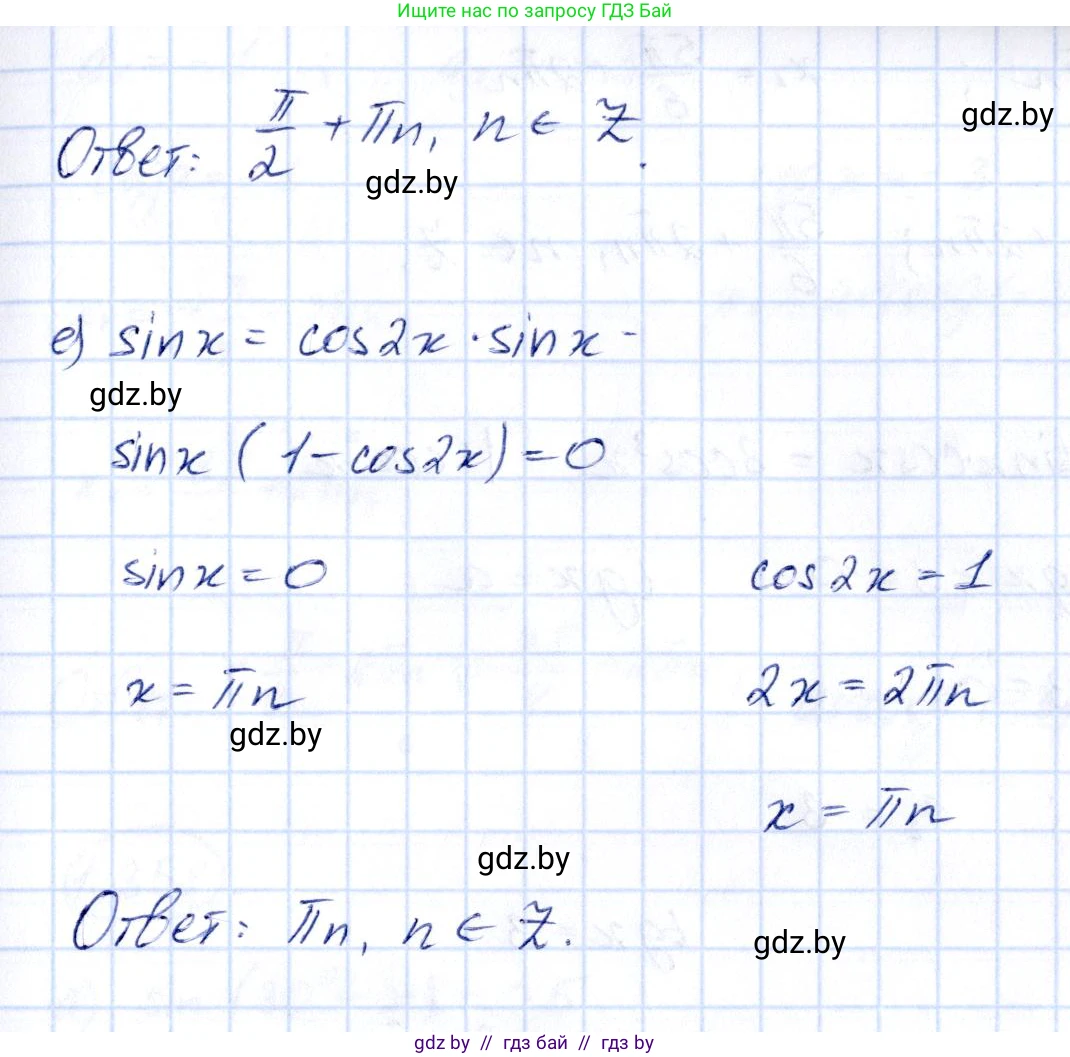 Ищите нас по запросу ГДЗ Бай
gdz.by
Ответ: π/2 + πn, n ∈ Z.
gdz.by
е) sinx = cos2x · sinx -
gdz.by
sinx (1 - cos2x) = 0
sinx = 0 cos2x = 1
x = πn 2x = 2πn
gdz.by
x = πn
gdz.by
Ответ: πn, n ∈ Z.
gdz.by
gdz by // гдз бай // gdz by